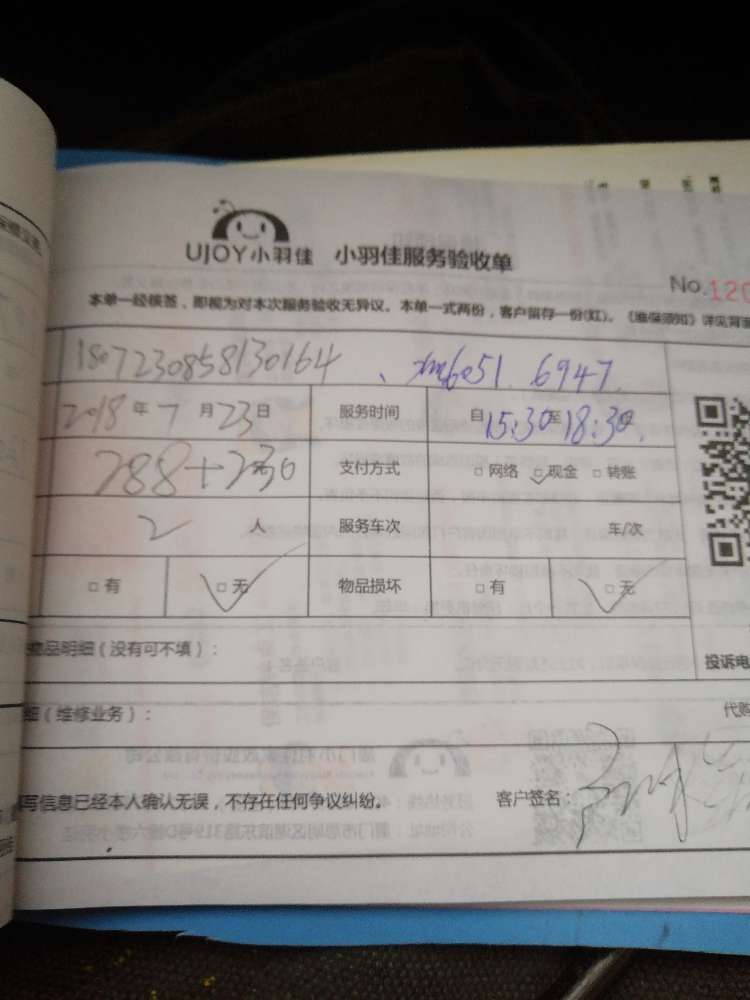 UJOY小羽佳 小羽佳服务验收单
No.120
本单一经核签，即视为对本次服务验收无异议。本单一式两份，客户留存一份(红)。《维保须知》详见背
1807230858130164 、 6051. 6947.
2018年7月23日 服务时间 自15:30至18:30
288+230 支付方式 □网络 □现金 □转账
2 人 服务车次 车/次
□有 □无 物品损坏 □有 □无
物品明细（没有可不填）：
投诉电
细（维修业务）：
代购
写信息已经本人确认无误，不存在任何争议纠纷。 客户签名：